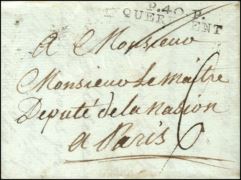 P.40.P.
QUERIMENT
A Monsieur
Monsieur le Maitre
Deputé de la Nacion
a Paris